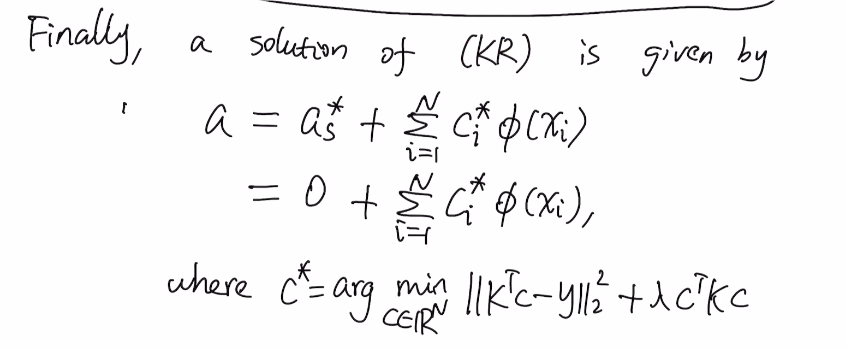 Finally, a solution of (KR) is given by
a = a_s^* + ∑_{i=1}^N c_i^* ϕ(x_i)
= 0 + ∑_{i=1}^N c_i^* ϕ(x_i),
where c^* = arg min_{c∈ℝ^N} ||K^T c − y||_2^2 + λ c^T K c